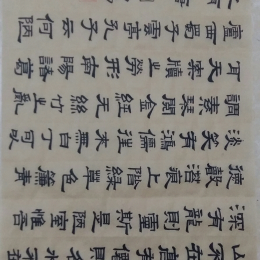 深有龍則靈斯是陋室惟吾
德馨苔痕上階綠草色簾青
談笑有鴻儒往來無白丁可以
調素琴閱金經無絲竹之亂
耳無案牘之勞形南陽諸葛
廬西蜀子雲亭孔子云何陋
之有